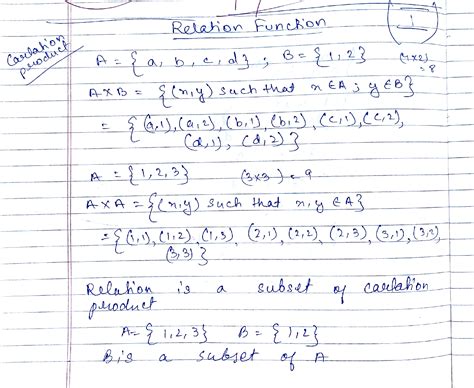 Relation Function
Cartation
product
A = { a, b, c, d } ; B = { 1, 2 } (4x2)
= 8
A x B = { (x,y) such that x ∈ A ; y ∈ B }
= { (a,1), (a,2), (b,1), (b,2), (c,1), (c,2),
(d,1), (d,2) }
A = { 1, 2, 3 } (3x3) = 9
A x A = { (x,y) such that x, y ∈ A }
= { (1,1), (1,2), (1,3), (2,1), (2,2), (2,3), (3,1), (3,2),
(3,3) }
Relation is a subset of cartation
product
A = { 1, 2, 3 } B = { 1, 2 }
B is a subset of A